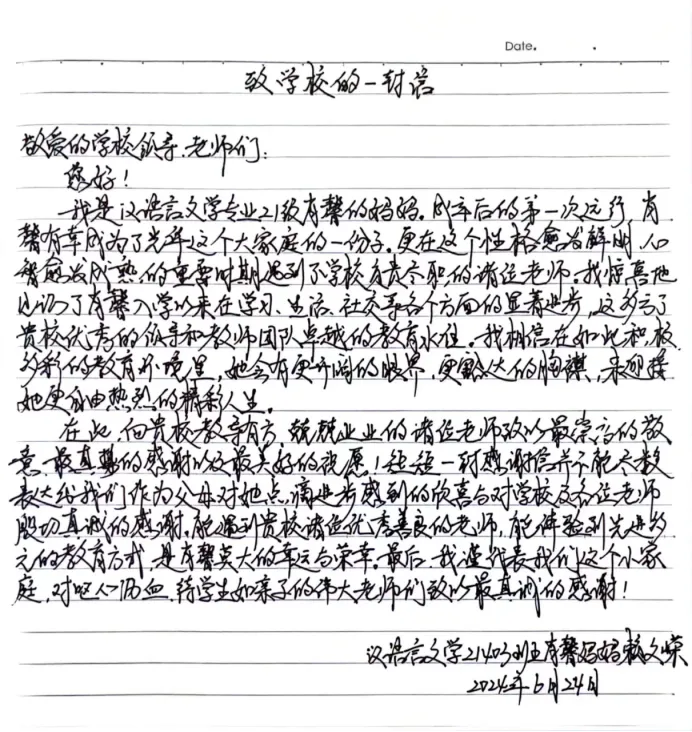 Date.
致学校的一封信
敬爱的学校领导、老师们:
您好!
我是汉语言文学专业21级肖馨的妈妈。成年后的第一次远行,肖
馨有幸成为了光华这个大家庭的一份子。更在这个性格愈发鲜明,心
智愈发成熟的重要时期遇到了学校负责尽职的诸位老师。我惊喜地
见证了肖馨入学以来在学习、生活、社交等各个方面的显著进步,这多亏了
贵校优秀的领导和教师团队卓越的教育水准。我相信在如此积极
多彩的教育环境里,她会有更开阔的眼界,更豁达的胸襟,来迎接
她更自由热烈的精彩人生。
在此,向贵校教导有方,兢兢业业的诸位老师致以最崇高的敬
意,最真挚的感谢以及最美好的祝愿!短短一封感谢信并不能尽数
表达给我们作为父母对她点滴进步感到的欣喜与对学校及各位老师
殷切真诚的感谢。能遇到贵校诸位优秀善良的老师,能体验到先进多
元的教育方式,是肖馨莫大的幸运与荣幸。最后,我谨代表我们这个小家
庭,对呕心沥血,待学生如亲子的伟大老师们致以最真诚的感谢!
汉语言文学21403班肖馨妈妈赖文荣
2024年6月24日